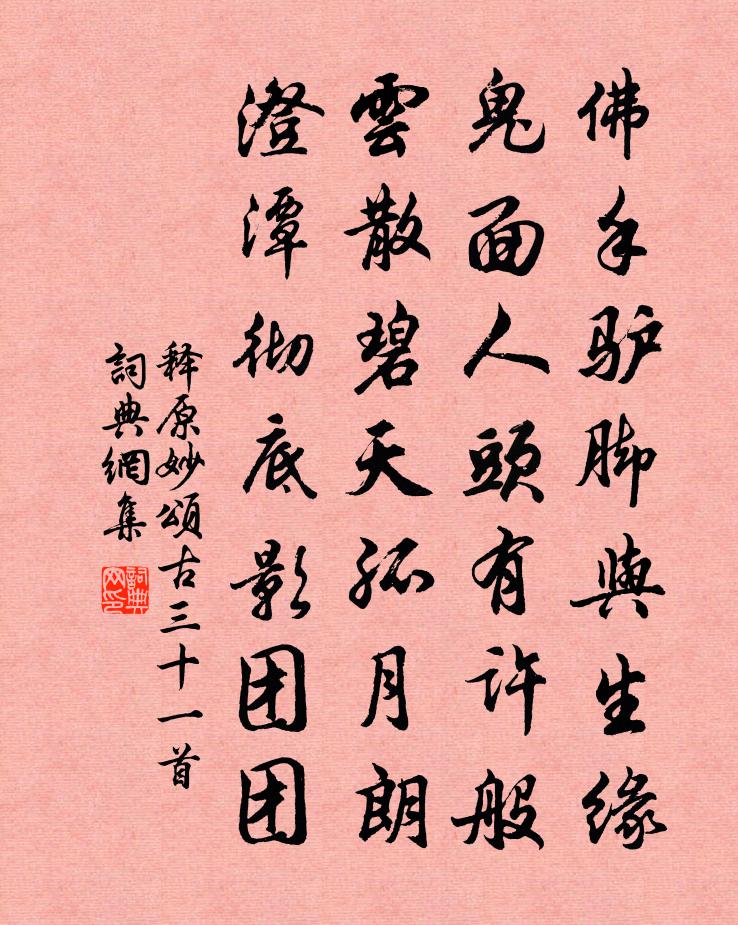 佛手驴脚與生缘
鬼面人頭有许般
雲散碧天孤月朗
澄潭彻底影团团
释原妙頌古三十一首
詞典網集
詞典网印